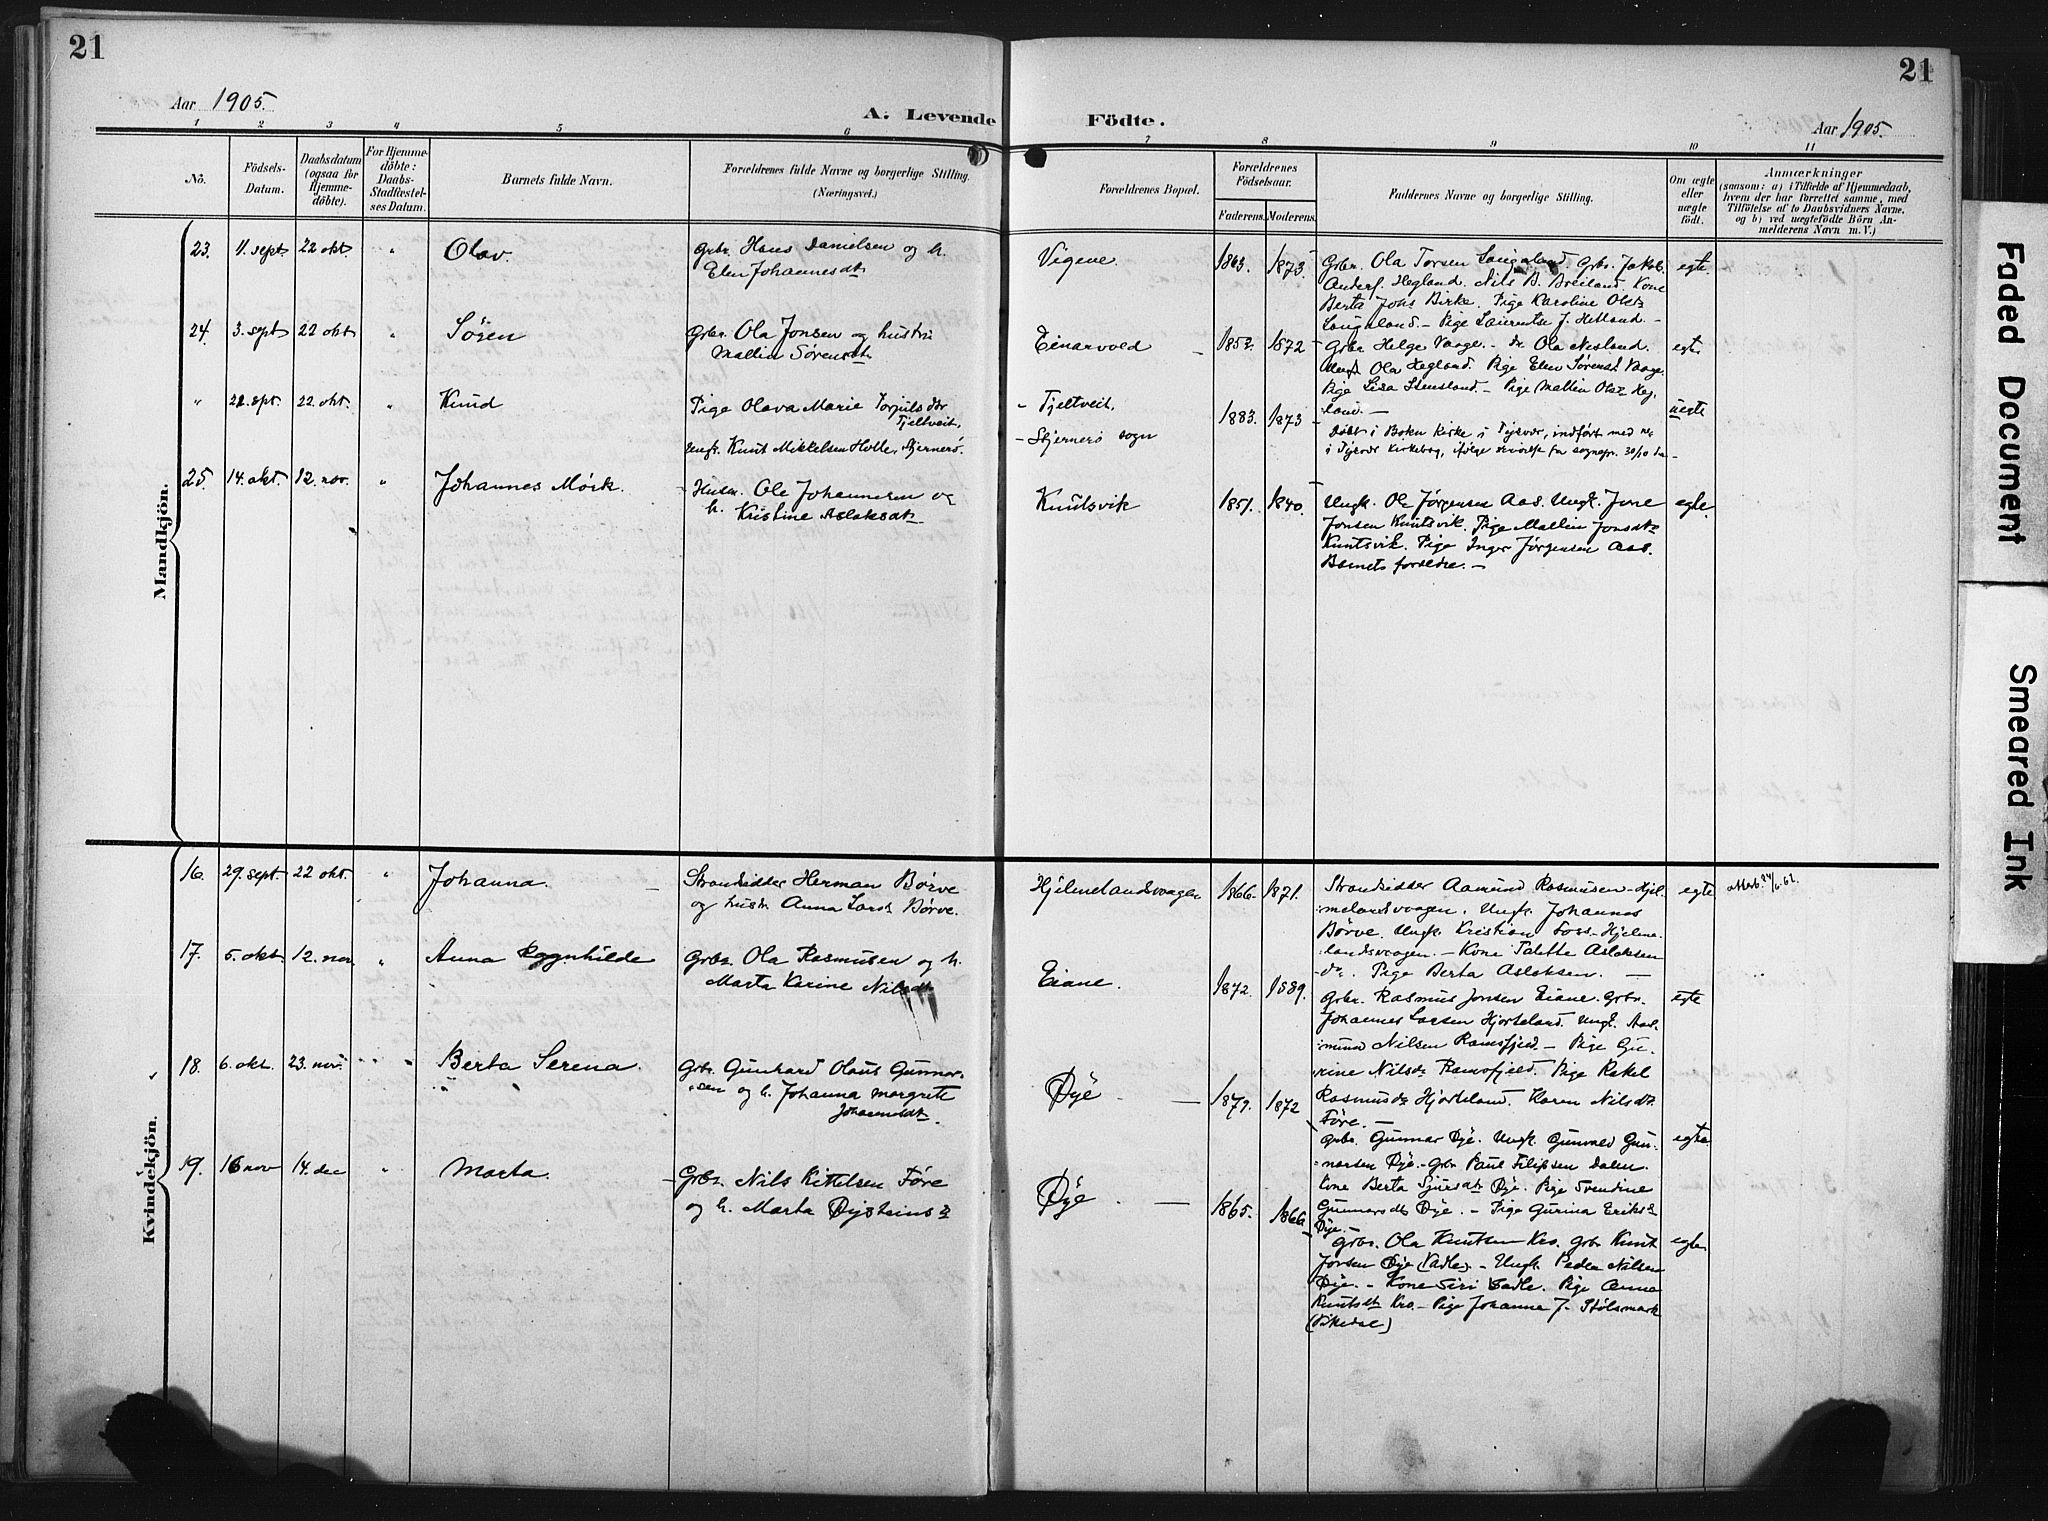 21
21
Aar 1905.
A. Levende Födte.
Aar 1905.
1 2 3 4 5 6 7 8 9 10 11
No.
Födsels-
Datum.
Daabsdatum
(ogsaa for
Hjemme-
döbte).
For Hjemme-
döbte:
Daabs-
Stadfæstel-
ses Datum.
Barnets fulde Navn.
Forældrenes fulde Navne og borgerlige Stilling.
(Næringsvei.)
Forældrenes Bopæl.
Forældrenes
Födselsaar.
Faderens. Moderens.
Faddernes Navne og borgerlige Stilling.
Om ægte
eller
uægte
födt.
Anmærkninger
(saasom: a) i Tilfælde af Hjemmedaab,
hvem der har forrettet samme, med
Tilföielse af to Daabsvidners Navne.
og b) ved uægtefödte Börn An-
melderens Navn m. V.)
Mandkjön.
23. 11. sept 22 okt " Olav.
Grbr Hans Danielsen og h.
Elen Johannesdt
Vigene 1863. 1873.
Grbr. Ola Torsen Langaland. Grbr. Jakob
Anders. Hegland. Nils B. Breiland. Kone
Berta Johs Birke. Pige Karoline Olsdt
Langaland. - Pige Laurentse J. Hetland. -
egte
24. 3. sept 22 okt " Sören
Grbr. Ola Jonsen og hustru
Mallin Sørensdt
Einarvold 1852. 1872
Grbr Helge Vaage. - Ola Nesland.
Ungk Ola Hegland. Pige Elen Sørensd Vaage.
Pige Lisa Stensland. - Pige Mallin Olsdt Heg
land. -
egte
" 22. spt. 22. okt. " Knud
Pige Olava Marie Torjuls dtr
Tjeltveit.
Ungk. Knut Mikkelsen Holle, Stjernerö.
- Tjeltveit.
- Stjernerö sogn
1883. 1873
Døbt i Bokn Kirke i Tysvær, indført med no
i Tysvær Kirkebog, ifølge
uegte
25. 14. okt. 12. nov. " Johannes Mörk.
Husm. Ole Johannesen og
h. Kristine Aslaksdt
Knutsvik 1851. 1840.
Ungk. Ole Jørgensen Aas. Ungk. Jone
Jonsen Knutsvik. Pige Mallin Jonsdt
Knutsvik. Pige Inger Jørgensen Aas.
Barnets foreldre. -
egte.
Kvindekjön.
16. 29. sept. 22 okt. " Johanna.
Strandsidder Herman Börve
og hustr. Anna Larsd Börve.
Hjelmelandsvaagen 1866. 1871.
Strandsidder Aamund Rasmussen Hjel
melandsvaagen. Ungk. Johannes
Börve. Ungk. Kristian Foss- Hjelme-
landsvaagen. - Kone Talette Aslaksen
do. Pige Berta Aslaksen. -
egte
17. 5. okt. 12. nov " Anna Ragnhilde
Grbr. Ola Rasmussen og h.
Marta Karine Nilsdt
Eiane. 1872. 1889.
Grbr. Rasmus Jonsen Eiane. Grbr.
Johannes Larsen Hjorteland. Ungk. Aas-
mund Nilsen Ramsfjeld. - Pige Gu-
rine Nilsdt Ramsfjeld. Pige Rakel
Rasmusdt Hjorteland. Karen Nilsdt
Føre. -
egte
18. 6. okt. 23. nov. " Berta Serena.
Grbr. Gunhard Olaus Gunnar-
sen og h. Johanna Margrete
Johannesdt.
Øye - 1879. 1872
Grbr. Gunnar Øye. Ungk. Gunvald Gun-
narsen Øye. - Grbr Paul Filipsen Dalen.
Kone Berta Sjursdt Øye. Pige Svendine
Gunnarsdt Øye. - Pige Gurina Eriksd
Øye. -
egte
19. 16 nov 14. dec " Marta.
Grbr. Nils Kittelsen Føre
og h. Marta Øysteinsd
Øye - 1865. 1866
Grbr. Ola Knutsen Kro. Grbr Knut
Jonsen Øye (Vadle). - Ungk. Peder Nilsen
Øye. - Kone Siri Vadle. Pige Anna
Knutsdt Kro. - Pige Johanna J. Stølsmark
(Vikedal)
egte
Faded Document
Smeared Ink